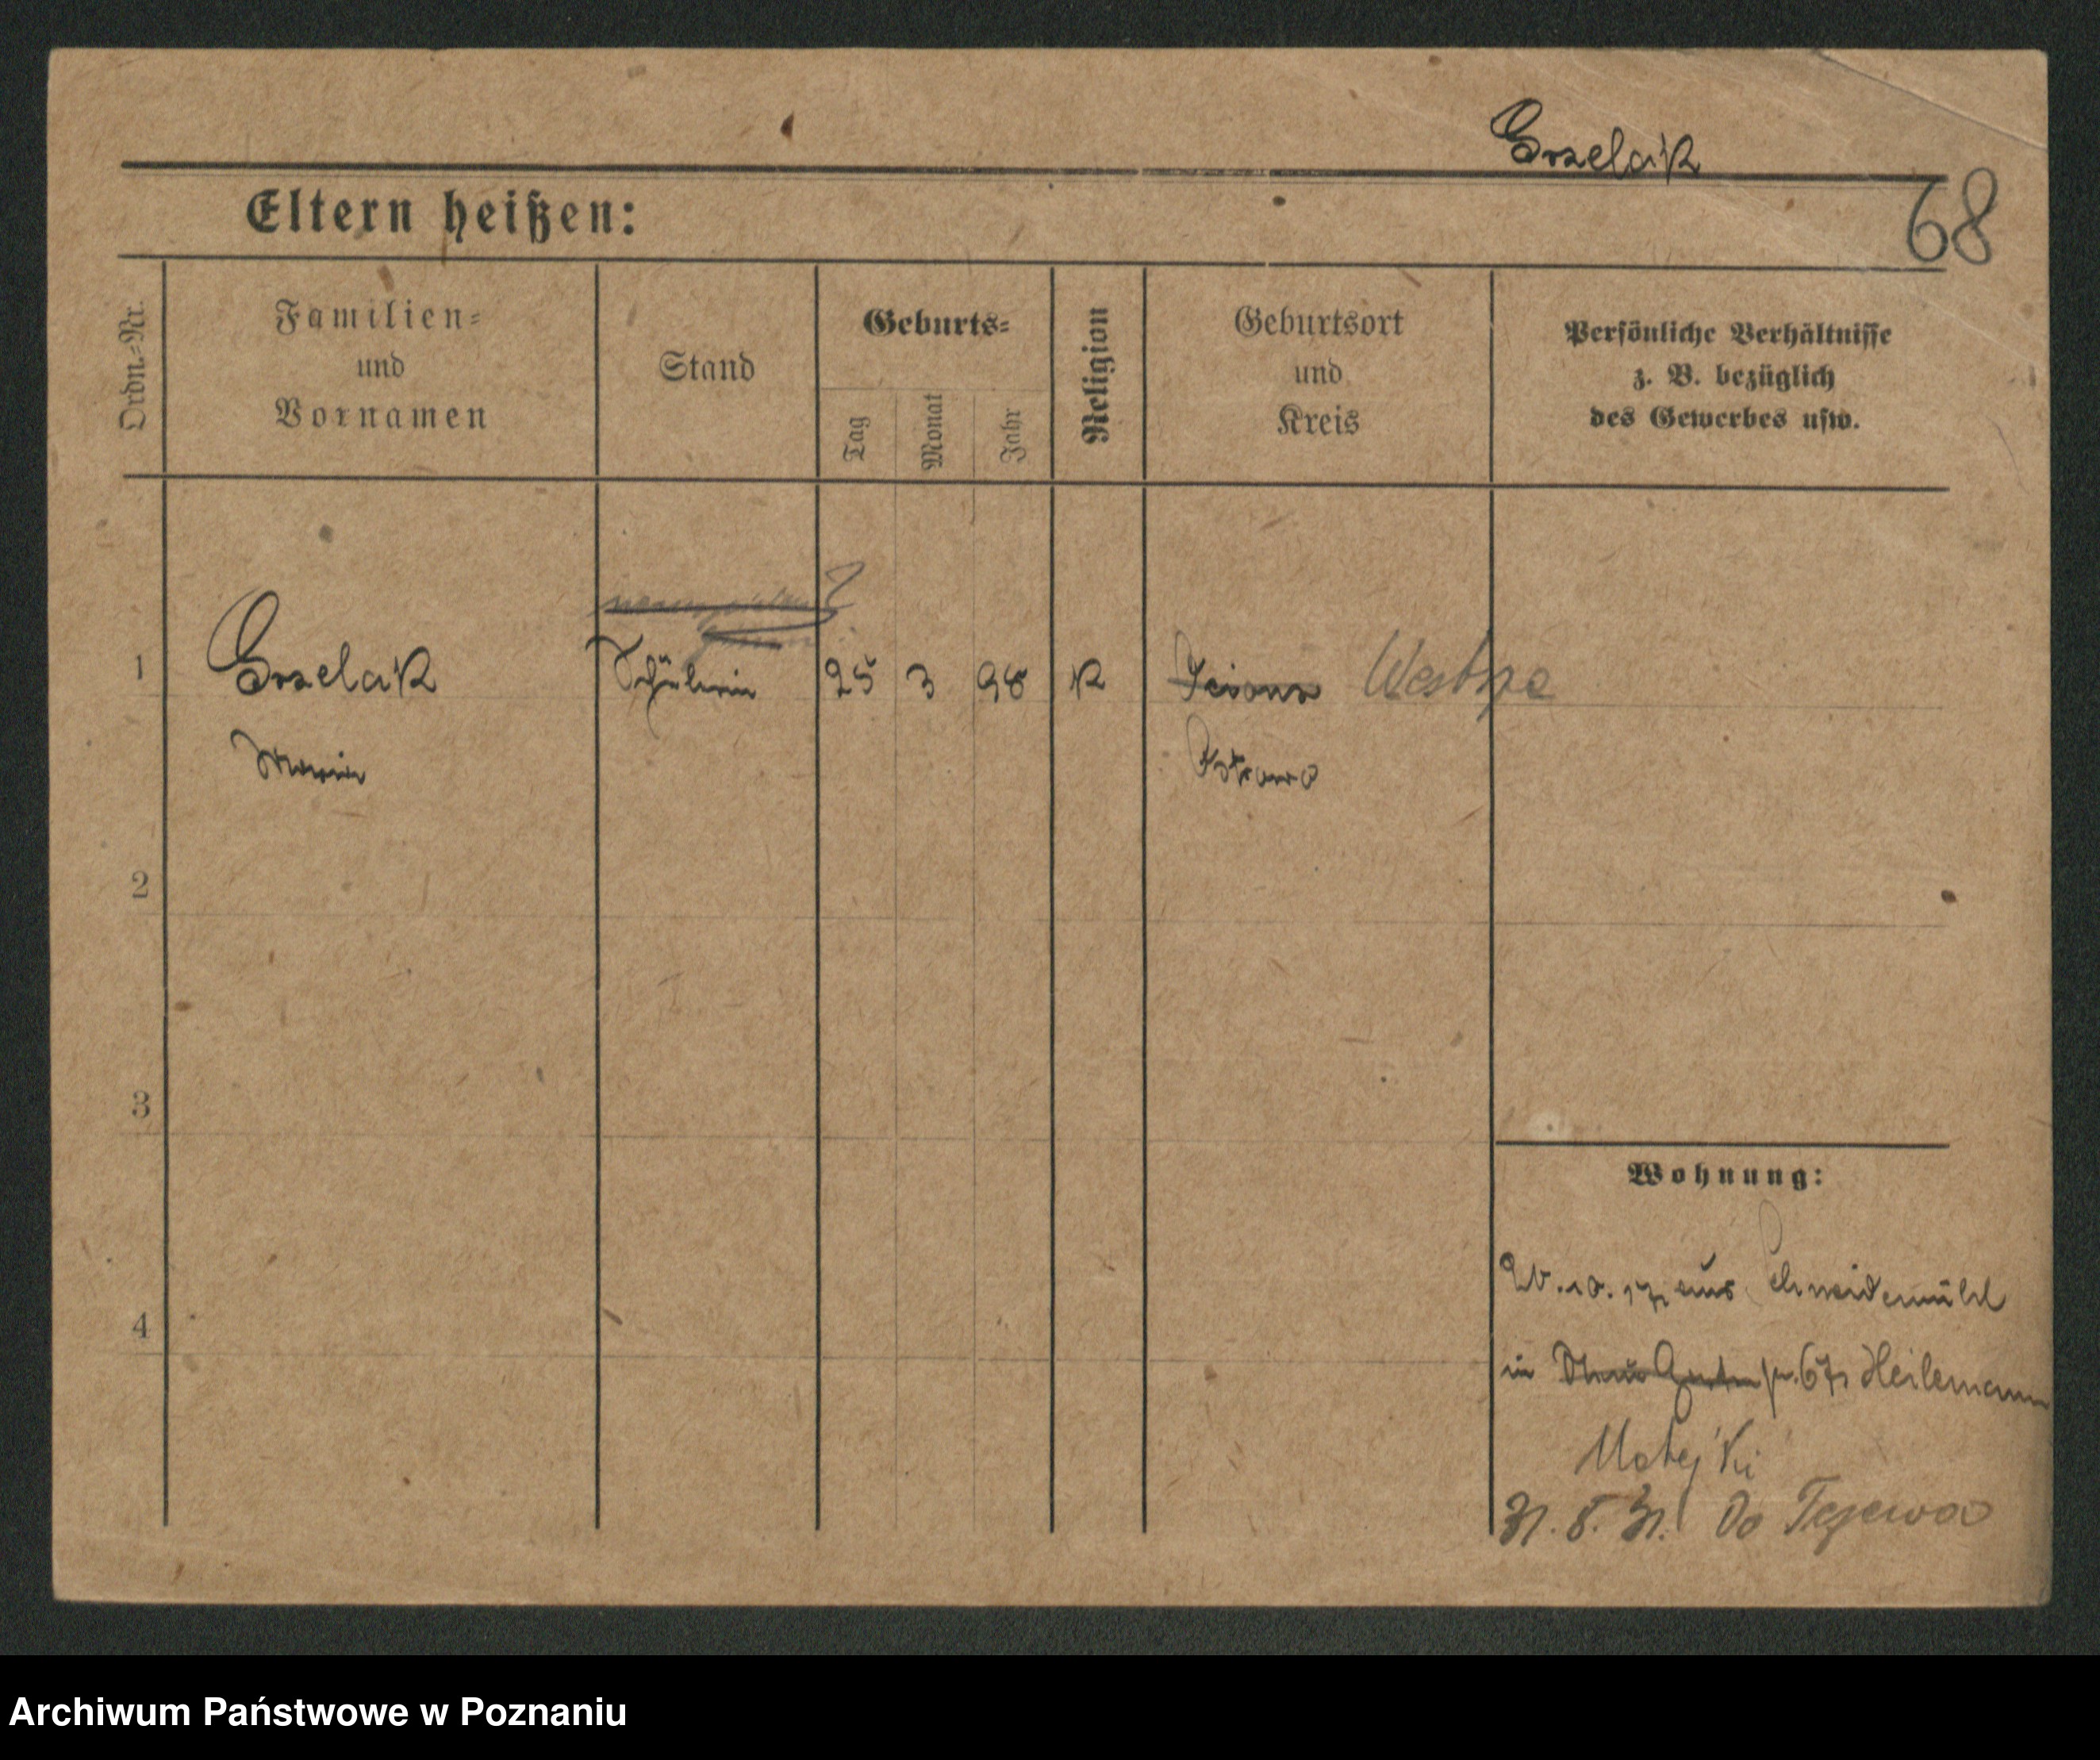 Grzelak
68
Eltern heißen:
Ordn.-Nr.
Familien-
und
Vornamen
Stand
Geburts-
Tag
Monat
Jahr
Religion
Geburtsort
und
Kreis
Persönliche Verhältnisse
z. B. bezüglich
des Gewerbes usw.
1 Grzelak Schülerin 25 3 98 K
Maria Ostrowo
2
3
4
Wohnung:
10. 17 aus Schneidemühl
in 67 Heilemann
Matejki
31. 8. 31. Do
Archiwum Państwowe w Poznaniu